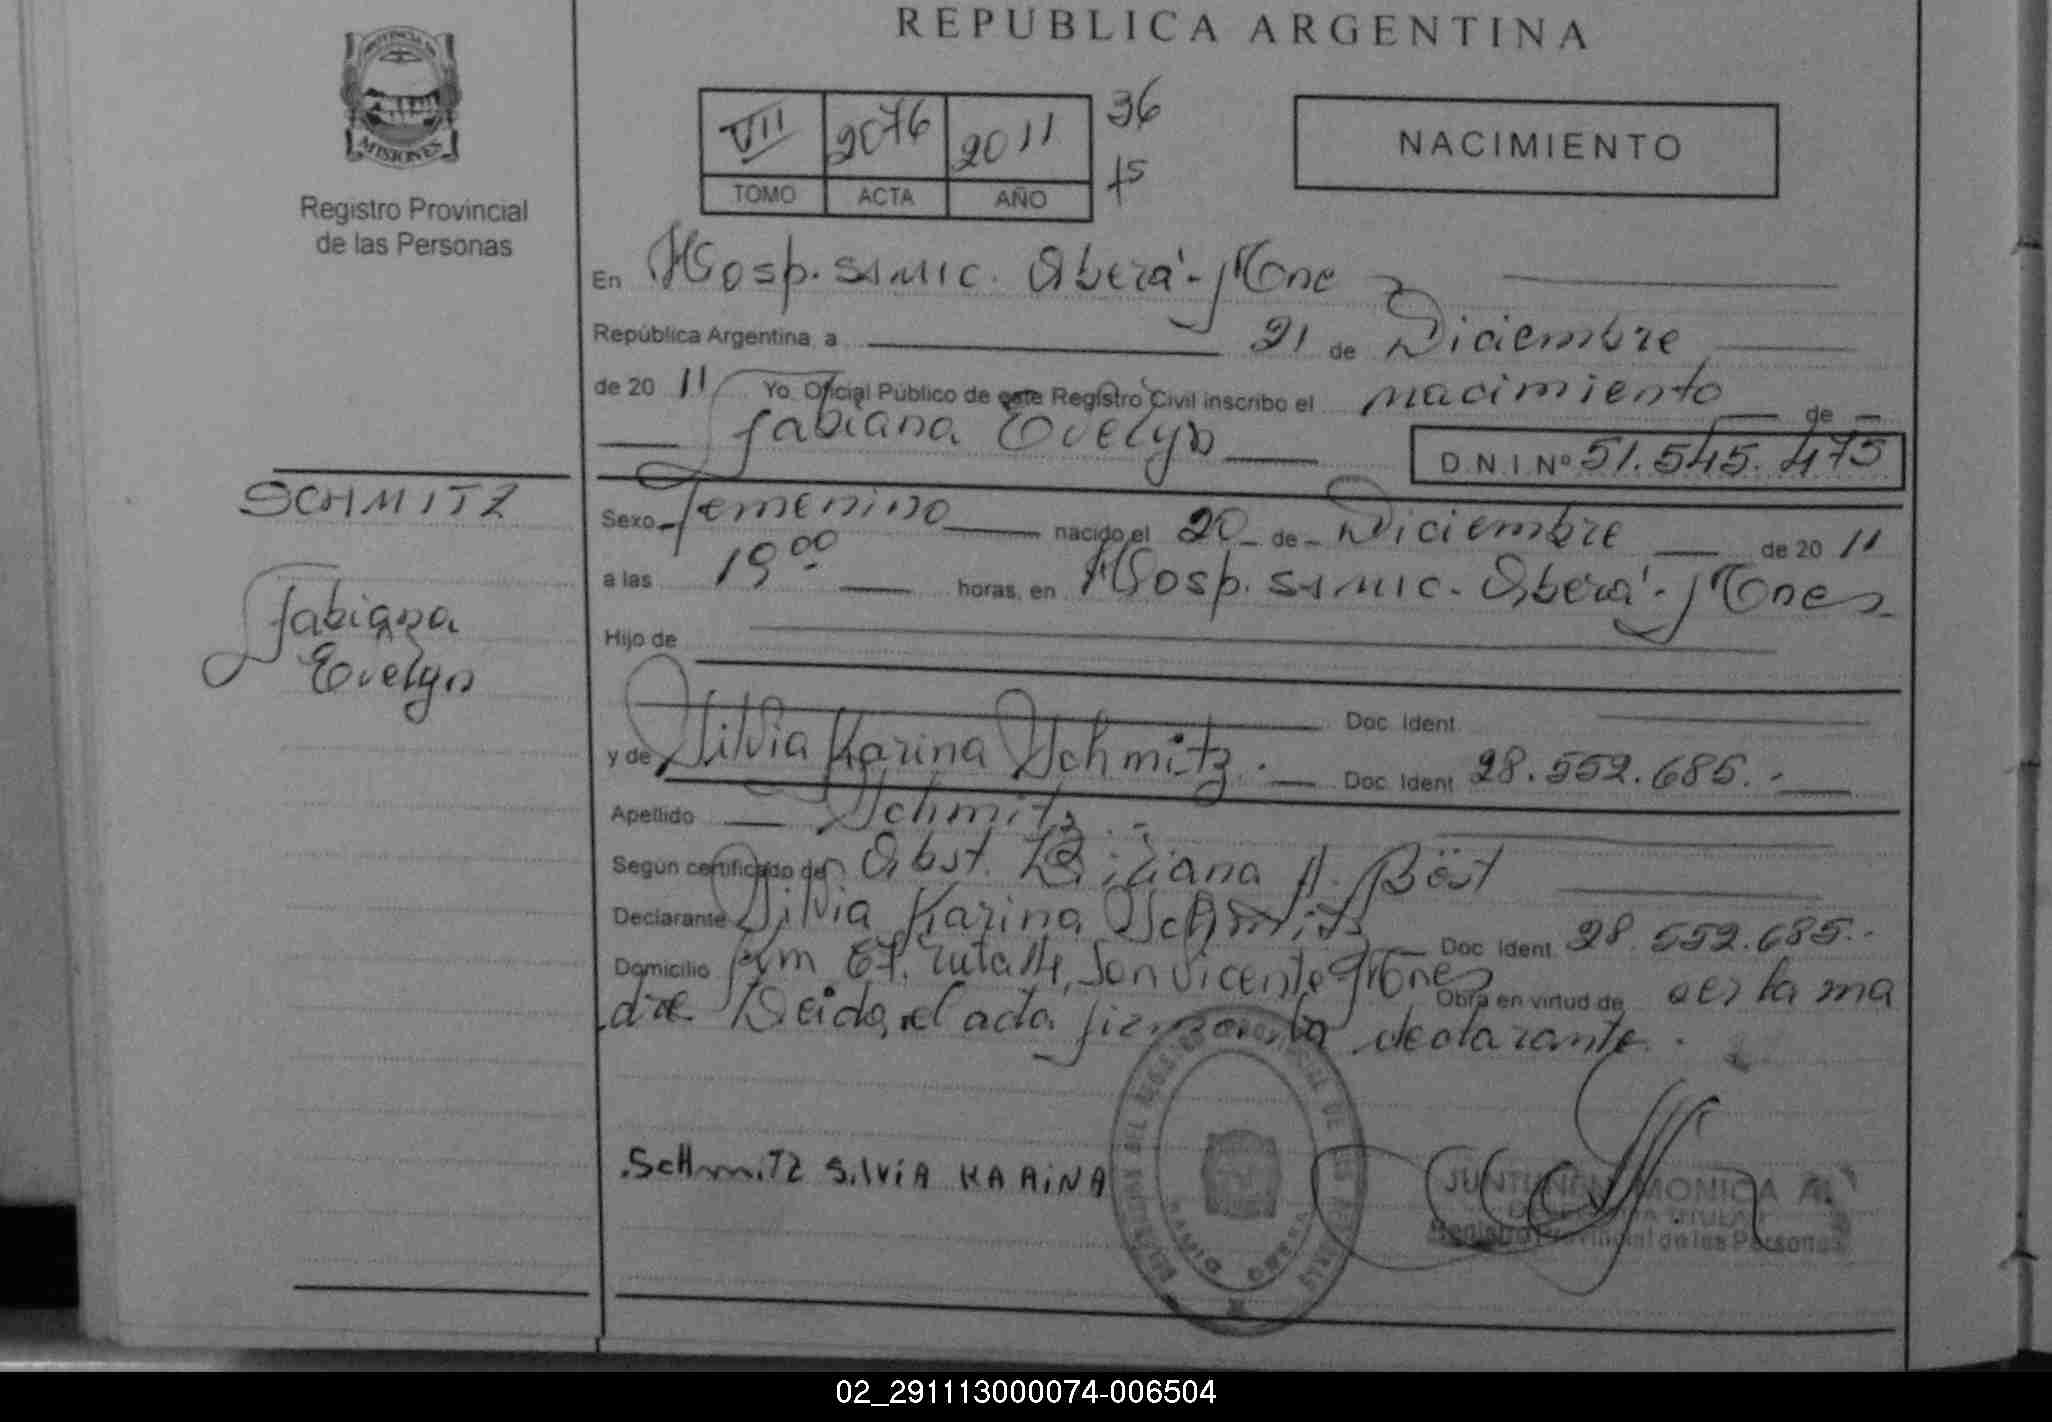 REPUBLICA ARGENTINA
PROVINCIA DE
MISIONES
Registro Provincial
de las Personas
VII 2076 2011 36
75
TOMO ACTA AÑO
NACIMIENTO
En Hosp. SAMIC. Oberá - Mnes
República Argentina, a 21 de Diciembre
de 20 11 Yo, Oficial Público de este Registro Civil inscribo el nacimiento de
Fabiana Evelyn D.N.I. Nº 51.545.475
SCHMITZ
Fabiana
Evelyn
Sexo Femenino nacido el 20 de Diciembre de 20 11
a las 19 00 horas, en Hosp. SAMIC. Oberá - Mnes
Hijo de
Doc. Ident.
y de Silvia Karina Schmitz. Doc. Ident. 28.552.685.-
Apellido Schmitz.-
Según certificado de Obst. Liliana A. Böst
Declarante Silvia Karina Schmitz Doc. Ident. 28.552.685.-
Domicilio Km 67, ruta 14, San Vicente Mnes Obra en virtud de ser la ma
dre Leida el acta firma la declarante.
SCHMITZ SILVIA KARINA
DEL REGISTRO PROVINCIAL DE LAS PERSONAS
OBERA
MONICA A.
DELEGADA TITULAR
Registro Provincial de las Personas
02_291113000074-006504